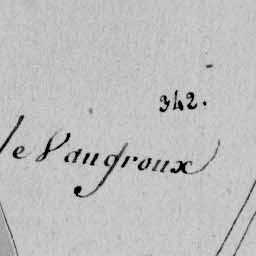 342.
le Vaugroux